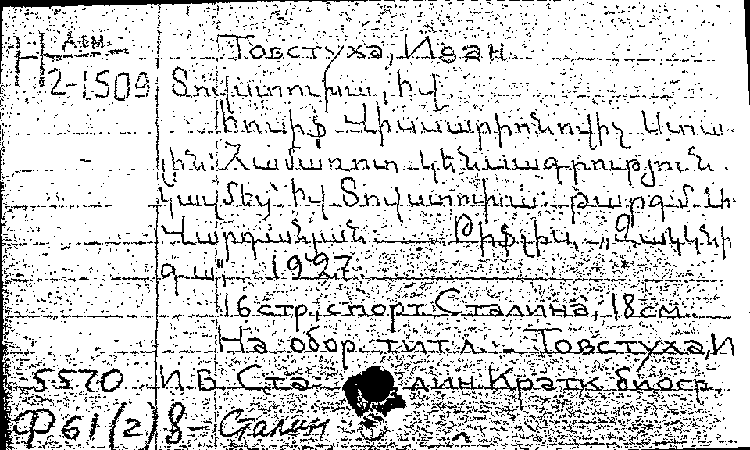 Арм.
Н 2-1509
Товстуха, Иван
Տովստուխա, Իվ
Իոսիֆ Վիսսարիոնովիչ Ստա
լին: Համառոտ կենսագրություն
կազմեց Իվ Տովստուխա: թարգմ. Ա
Վարդանյան. Թիֆլիս, „Զակկնի
գա", 1927
16 стр., с порт. Сталина, 18 см.
На обор. тит. л.: Товстуха, И
5570 И.В. Сталин Кратк. биогр.
Ф 61(2)8 - Сталин